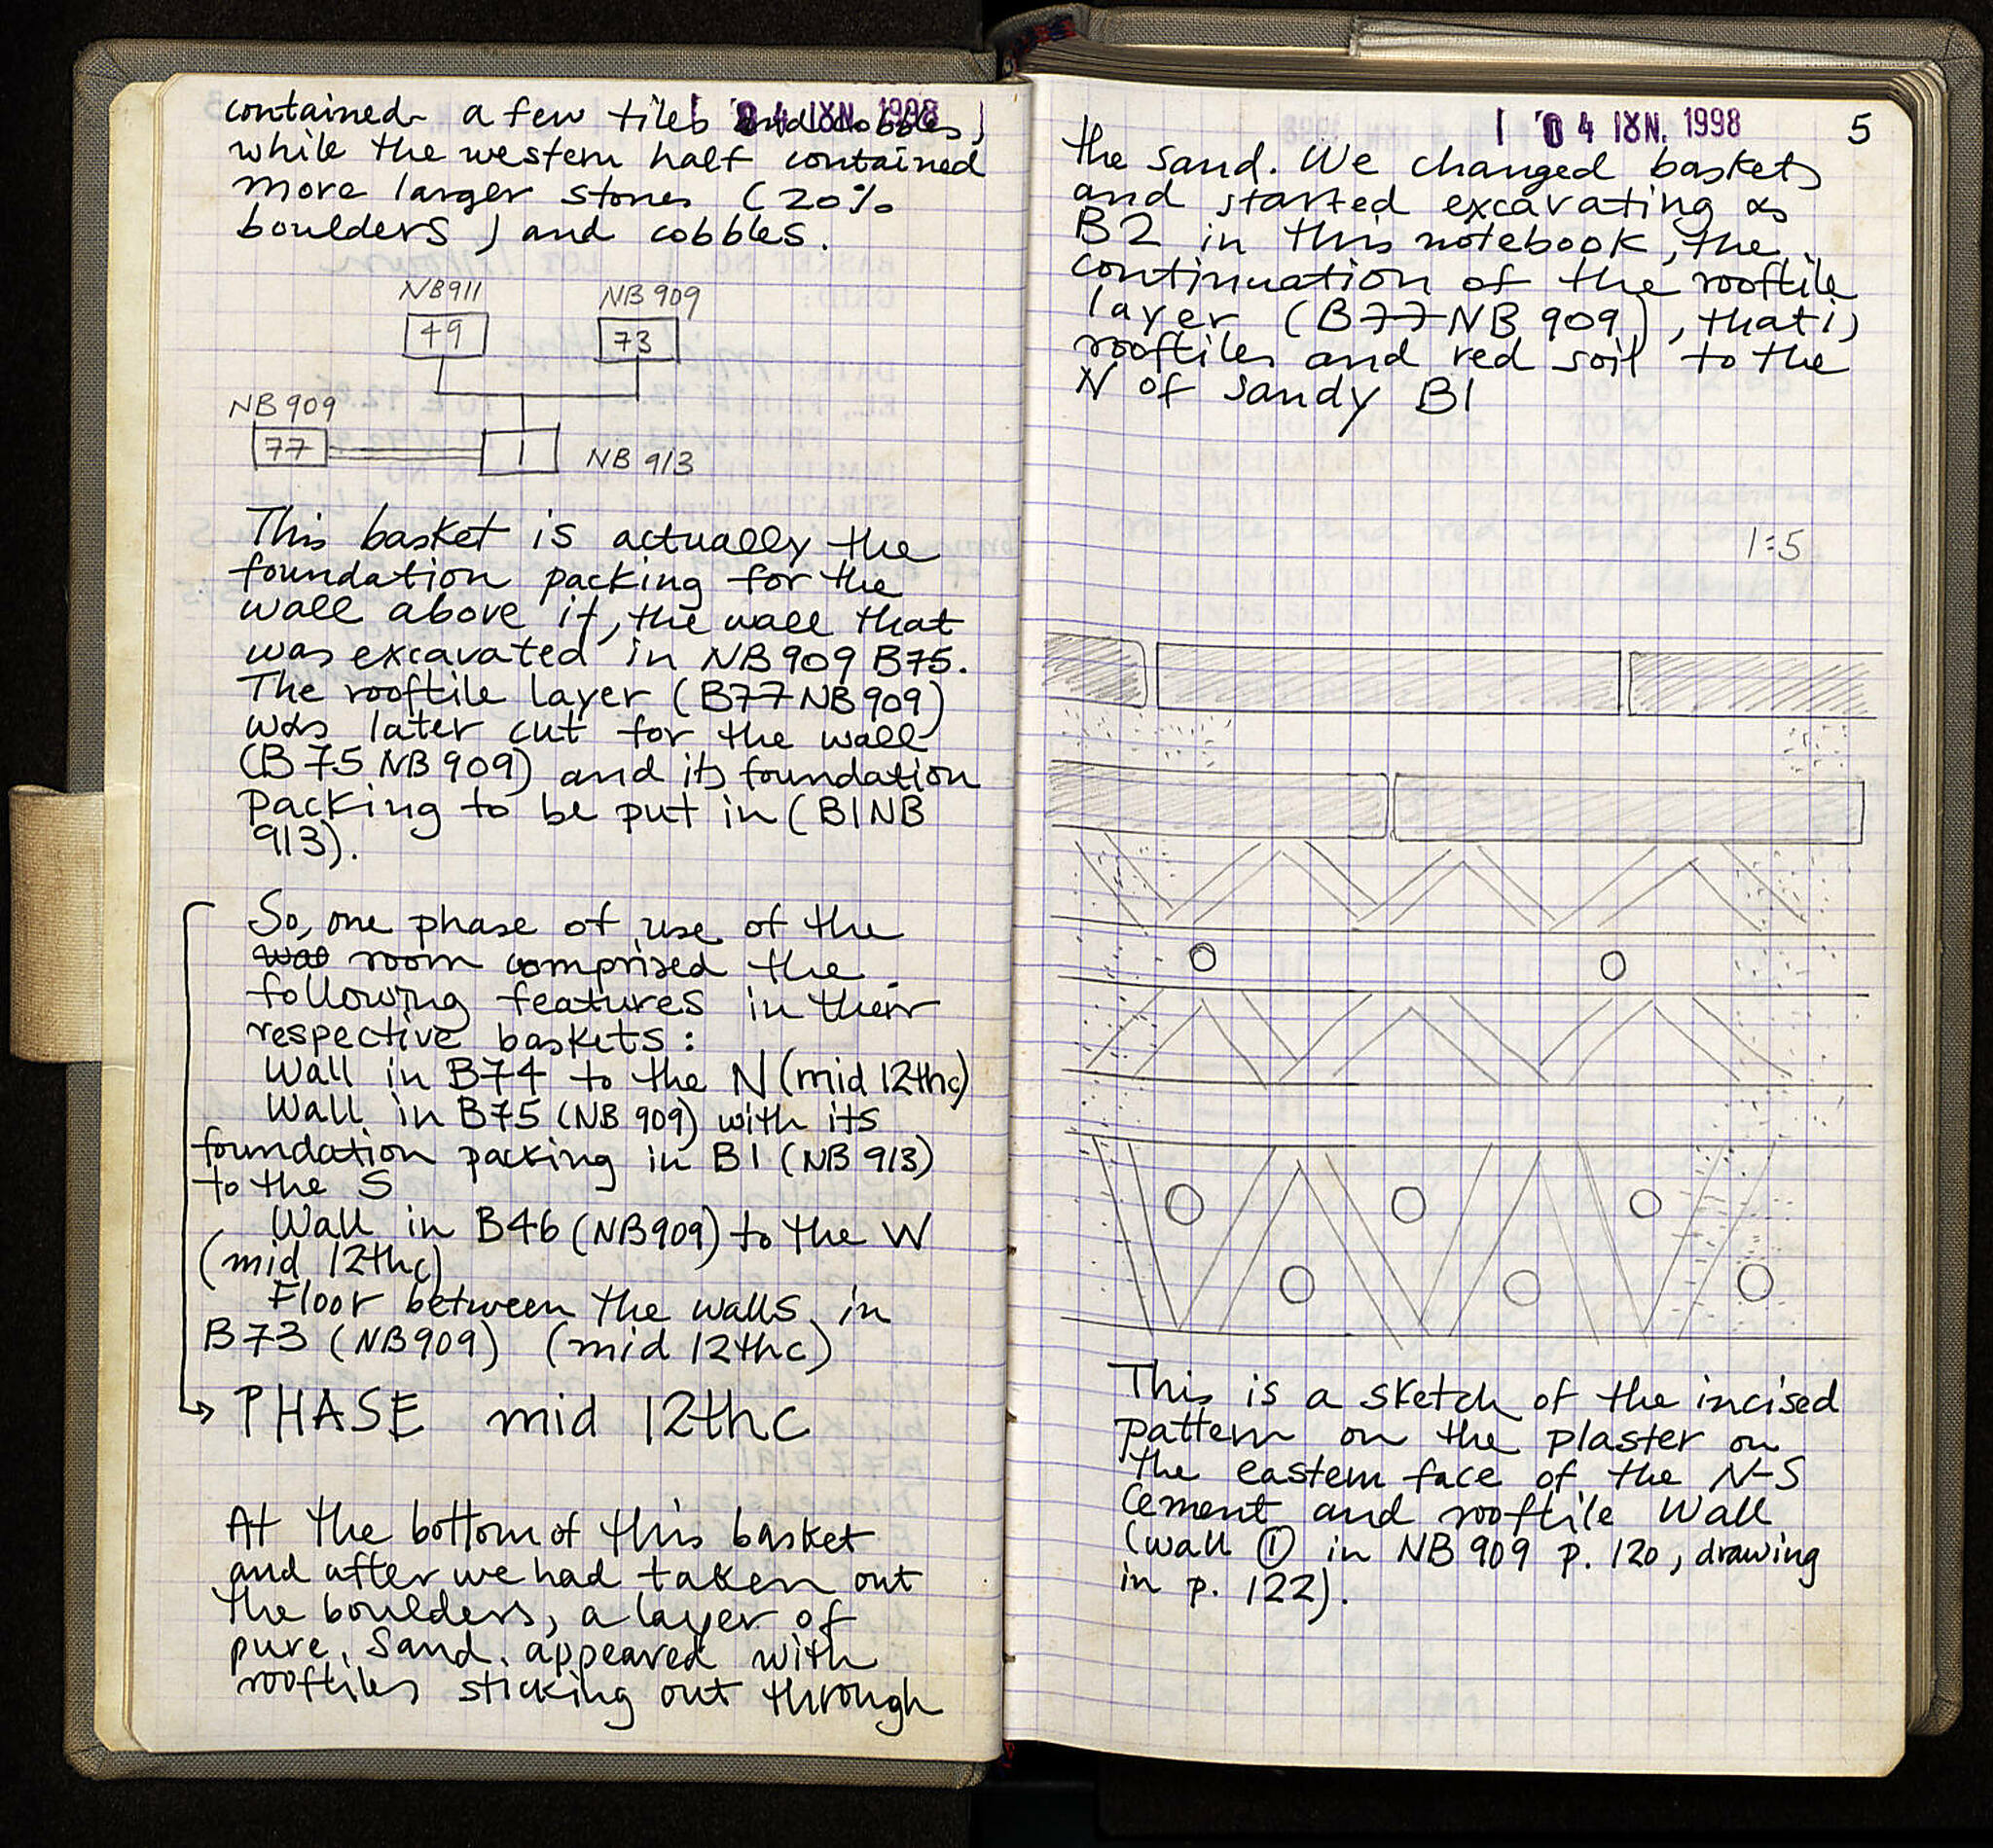 04 ΙΟΥΝ. 1998
contained a few tiles and cobbles,
while the western half contained
more larger stones (20%
boulders) and cobbles.
NB911 NB 909
49 73
NB 909
77 1 NB 913
This basket is actually the
foundation packing for the
wall above it, the wall that
was excavated in NB 909 B75.
The rooftile layer (B77 NB 909)
was later cut for the wall
(B75 NB 909) and its foundation
packing to be put in (B1 NB
913).
So, one phase of use of the
room comprised the
following features in their
respective baskets:
Wall in B74 to the N (mid 12thc)
Wall in B75 (NB 909) with its
foundation packing in B1 (NB 913)
to the S
Wall in B46 (NB909) to the W
(mid 12thc)
Floor between the walls in
B73 (NB909) (mid 12thc)
PHASE mid 12thc
At the bottom of this basket
and after we had taken out
the boulders, a layer of
pure sand appeared with
rooftiles sticking out through
04 ΙΟΥΝ. 1998 5
the sand. We changed baskets
and started excavating as
B2 in this notebook, the
continuation of the rooftile
layer (B77 NB 909), that is
rooftiles and red soil to the
N of sandy B1
1:5
This is a sketch of the incised
pattern on the plaster on
the eastern face of the N-S
cement and rooftile wall
(wall ① in NB 909 p. 120, drawing
in p. 122).